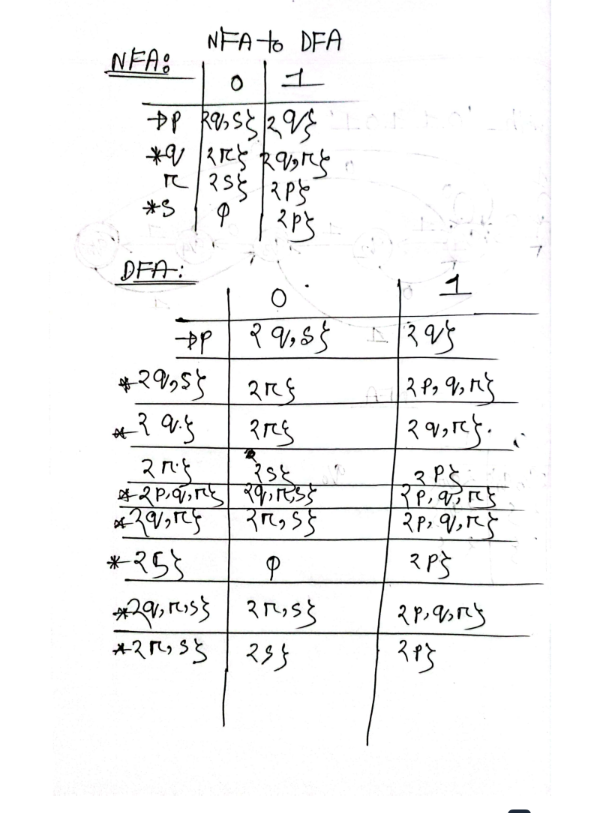 NFA to DFA
NFA:
0 1
→p {q,s} {q}
*q {r} {q,r}
r {s} {p}
*s φ {p}
DFA:
0 1
→p {q,s} {q}
*{q,s} {r} {p,q,r}
*{q} {r} {q,r}.
{r} {s} {p}
*{p,q,r} {q,r,s} {p,q,r}
*{q,r} {r,s} {p,q,r}
*{s} φ {p}
*{q,r,s} {r,s} {p,q,r}
*{r,s} {s} {p}